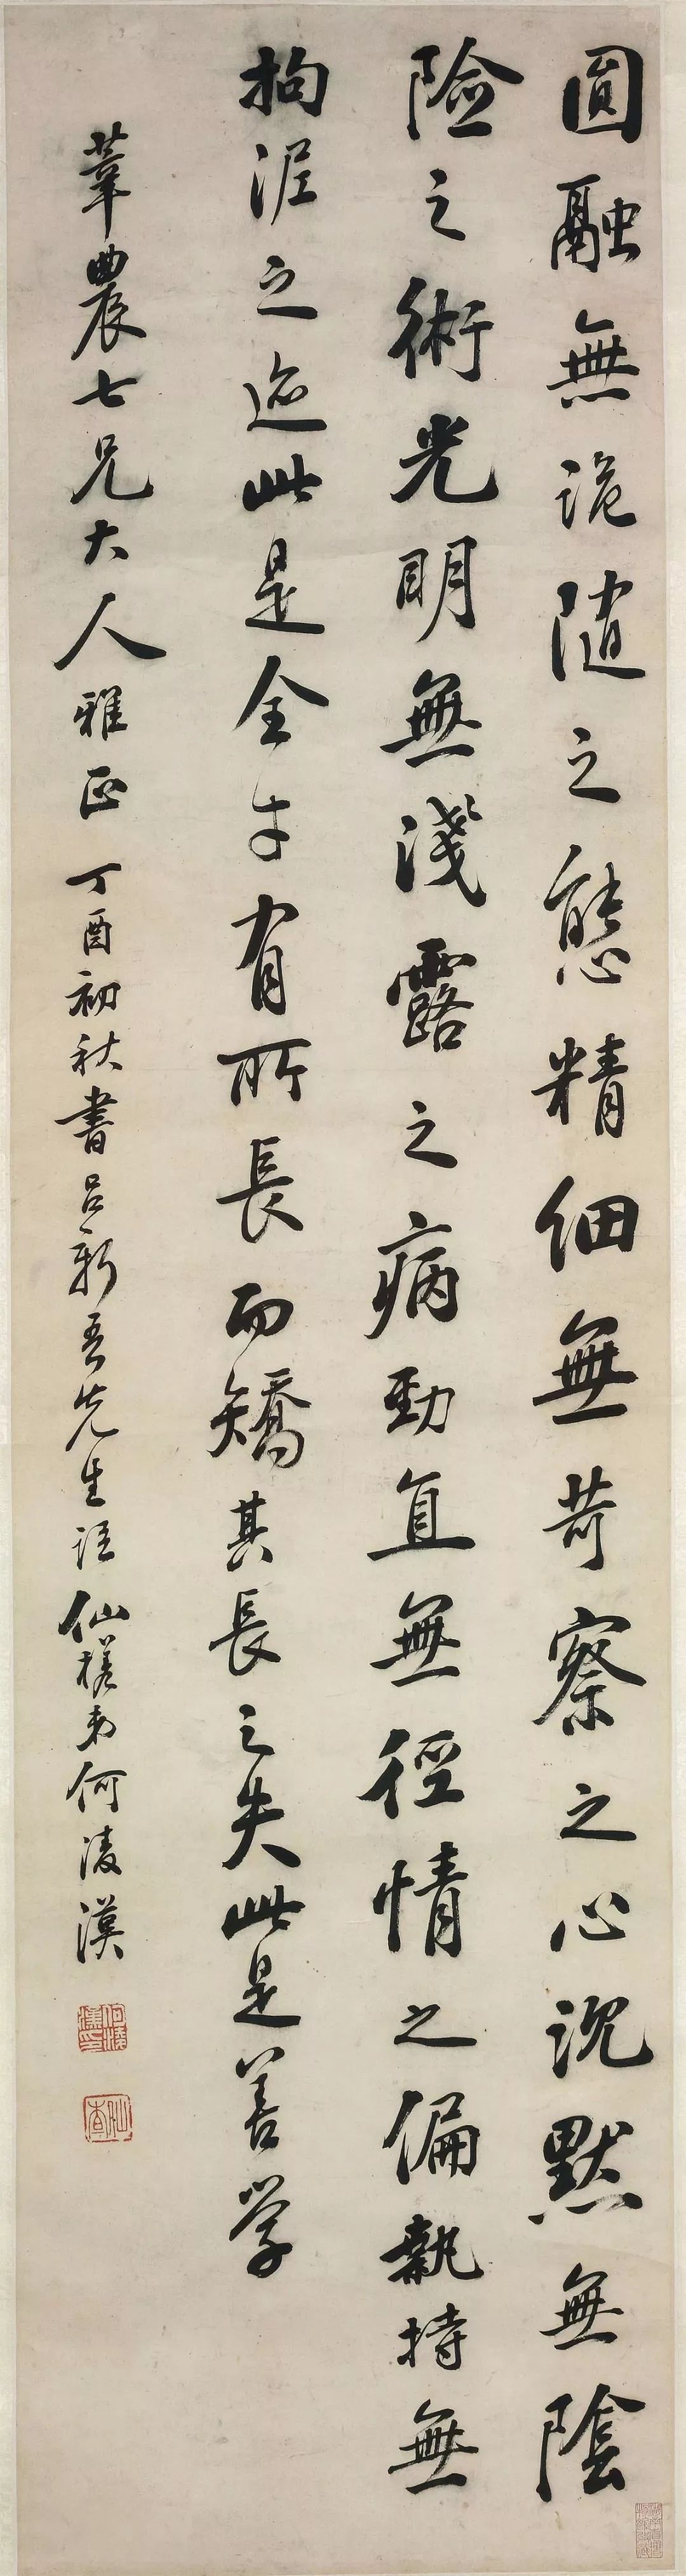 圓融無詭隨之態精細無苛察之心沉默無陰
險之術光明無淺露之病勁直無徑情之偏執持無
拘泥之迹此是全才有所長而矯其長之失此是善學
葦農七兄大人雅正 丁酉初秋書呂新吾先生語 仙槎弟何淩漢
何淩漢印
仙槎